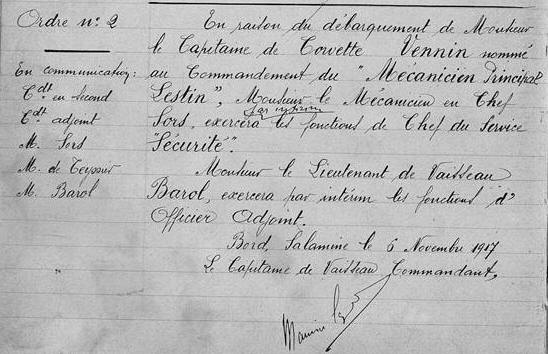 Ordre n: 2
En communication:
Cdt en second
Cdt adjoint
M. Sors
M. de Teyssier
M. Barol
En raison du débarquement de Monsieur
le Capitaine de Corvette Vennin nommé
au Commandement du "Mécanicien Principal
Lestin", Monsieur le Mécanicien en Chef
par intérim
Sors, exercera les fonctions de Chef du Service
"Sécurité".
Monsieur le Lieutenant de Vaisseau
Barol, exercera par intérim les fonctions d'
Officier Adjoint.
Bord, Salamine le 6 Novembre 1917
Le Capitaine de Vaisseau Commandant,